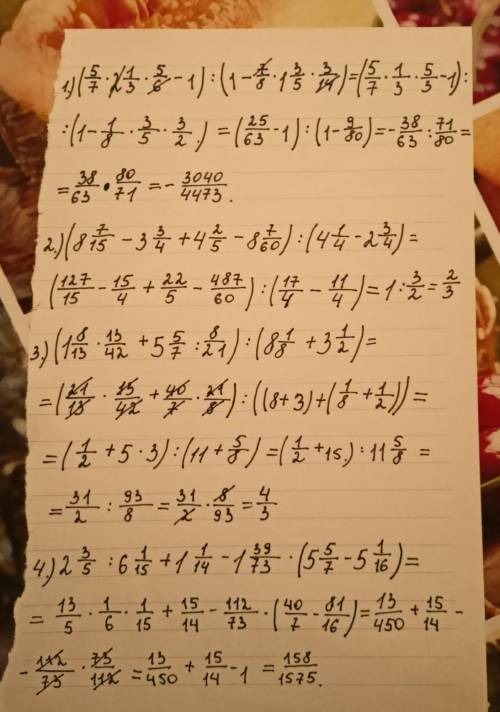 1.) (5/7 · 2 1/3 · 5/6 - 1) : (1 - 7/8 · 1 3/5 · 3/14) = (5/7 · 1/3 · 5/3 - 1) :
: (1 - 1/8 · 3/5 · 3/2) = (25/63 - 1) : (1 - 9/80) = - 38/63 : 71/80 =
= 38/63 · 80/71 = - 3040/4473.
2.) (8 7/15 - 3 3/4 + 4 2/5 - 8 7/60) : (4 1/4 - 2 3/4) =
(127/15 - 15/4 + 22/5 - 487/60) : (17/4 - 11/4) = 1 : 3/2 = 2/3
3.) (1 8/13 · 13/42 + 5 5/7 : 8/21) : (8 1/8 + 3 1/2) =
= (21/13 · 13/42 + 40/7 · 21/8) : ((8+3) + (1/8 + 1/2)) =
= (1/2 + 5 · 3) : (11 + 5/8) = (1/2 + 15) : 11 5/8 =
= 31/2 : 93/8 = 31/2 · 8/93 = 4/3
4.) 2 3/5 : 6 1/15 + 1 1/14 - 1 39/73 · (5 5/7 - 5 1/16) =
= 13/5 · 1/6 · 1/15 + 15/14 - 112/73 · (40/7 - 81/16) = 13/450 + 15/14 -
- 112/73 · 73/112 = 13/450 + 15/14 - 1 = 158/1575.